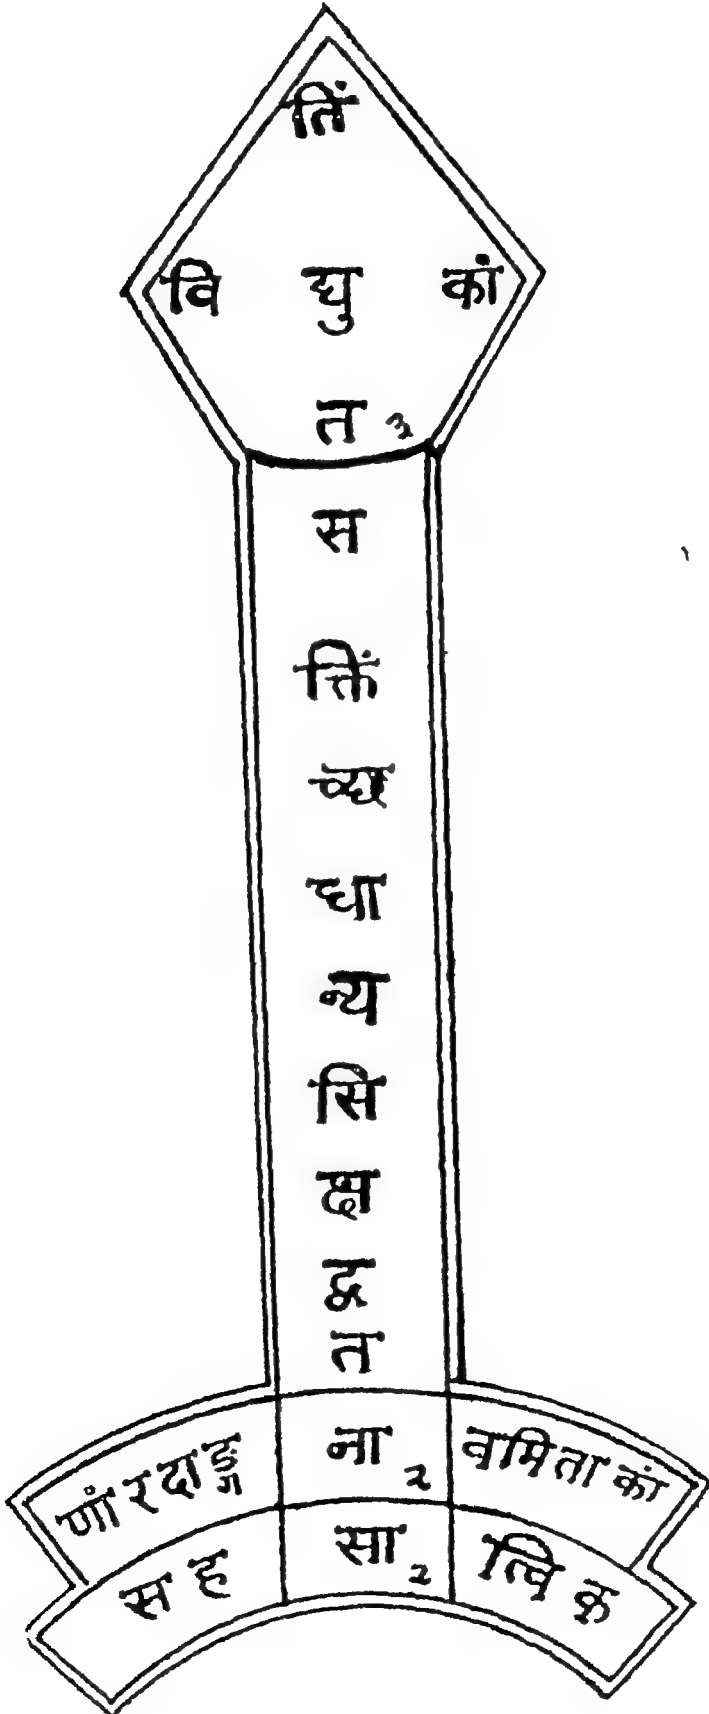 तिं
वि द्यु कां
त ३
स
क्तिं
च्छ
धा
न्य
सि
क्ष
द्व
त
णां र दा ङ्ग ना २ व मि ता कां
स ह सा २ त्वि क